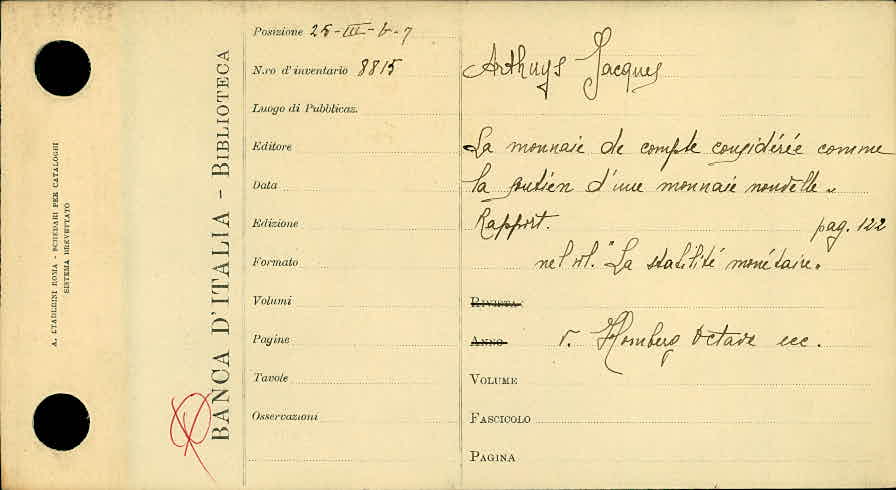 A. STADERINI ROMA - SCHEDARI PER CATALOGHI
SISTEMA BREVETTATO
BANCA D'ITALIA - BIBLIOTECA
Posizione 25-III-b-7
N.ro d'inventario 8815
Luogo di Pubblicaz.
Editore
Data
Edizione
Formato
Volumi
Pagine
Tavole
Osservazioni
Arthuys Jacques
La monnaie de compte considérée comme
la soutien d'une monnaie nouvelle"
Rapport. pag. 122
nel vol. "La stabilité monétaire"
RIVISTA:
ANNO v. Homberg Octave ecc.
VOLUME
FASCICOLO
PAGINA